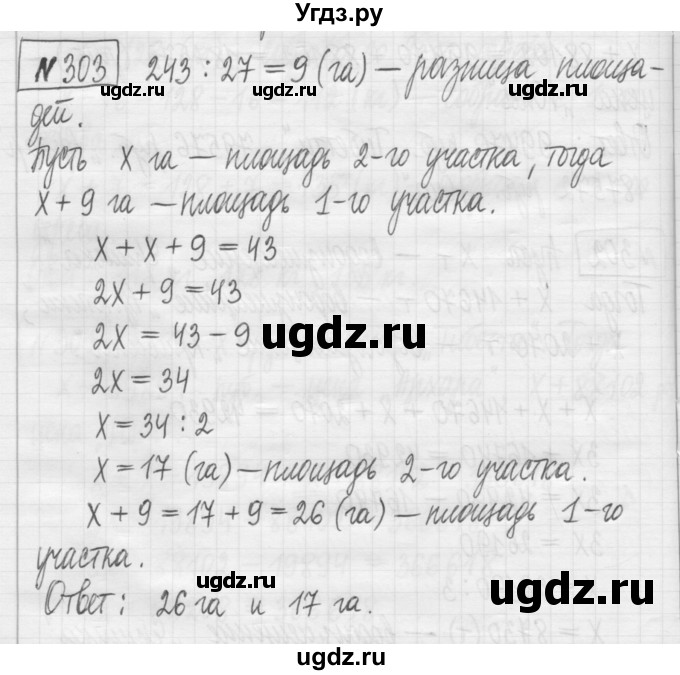 Угдз.ру
№303 243 : 27 = 9 (га) — разница площа-
ugdz.ru ugdz.ru
дей.
Пусть х га — площадь 2-го участка, тогда
х + 9 га — площадь 1-го участка.
ugdz.ru ugdz.ru
х + х + 9 = 43
2х + 9 = 43
2х = 43 − 9
ugdz.ru ugdz.ru
2х = 34
х = 34 : 2
х = 17 (га) — площадь 2-го участка.
ugdz.ru ugdz.ru
х + 9 = 17 + 9 = 26 (га) — площадь 1-го
участка.
ugdz.ru
ugdz.ru
Ответ: 26 га и 17 га.
ugdz.ru